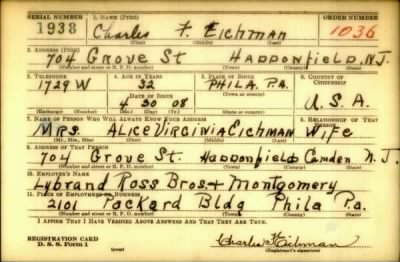 SERIAL NUMBER 1. NAME (Print) ORDER NUMBER
1933 Charles F. Eichman 1036
(First) (Middle) (Last)
2. ADDRESS (Print)
704 Grove St HADDONFIELD, N.J.
(Number and street or R. F. D. number) (Town) (County) (State)
3. TELEPHONE 4. AGE IN YEARS 5. PLACE OF BIRTH 6. COUNTRY OF CITIZENSHIP
1729 W 32 PHILA. PA.
DATE OF BIRTH (Town or county)
4 30 08 U.S.A.
(Exchange) (Number) (Mo.) (Day) (Yr.) (State or country)
7. NAME OF PERSON WHO WILL ALWAYS KNOW YOUR ADDRESS 8. RELATIONSHIP OF THAT PERSON
MRS. ALICE VIRGINIA EICHMAN Wife
(Mr., Mrs., Miss) (First) (Middle) (Last)
9. ADDRESS OF THAT PERSON
704 Grove St. Haddonfield Camden N.J.
(Number and street or R. F. D. number) (Town) (County) (State)
10. EMPLOYER'S NAME
Lybrand Ross Bros. + Montgomery
11. PLACE OF EMPLOYMENT OR BUSINESS
2101 Packard Bldg Phila Pa.
(Number and street or R. F. D. number) (Town) (County) (State)
I AFFIRM THAT I HAVE VERIFIED ABOVE ANSWERS AND THAT THEY ARE TRUE.
REGISTRATION CARD
D. S. S. Form 1 (over) Charles F. Eichman
(Registrant's signature)